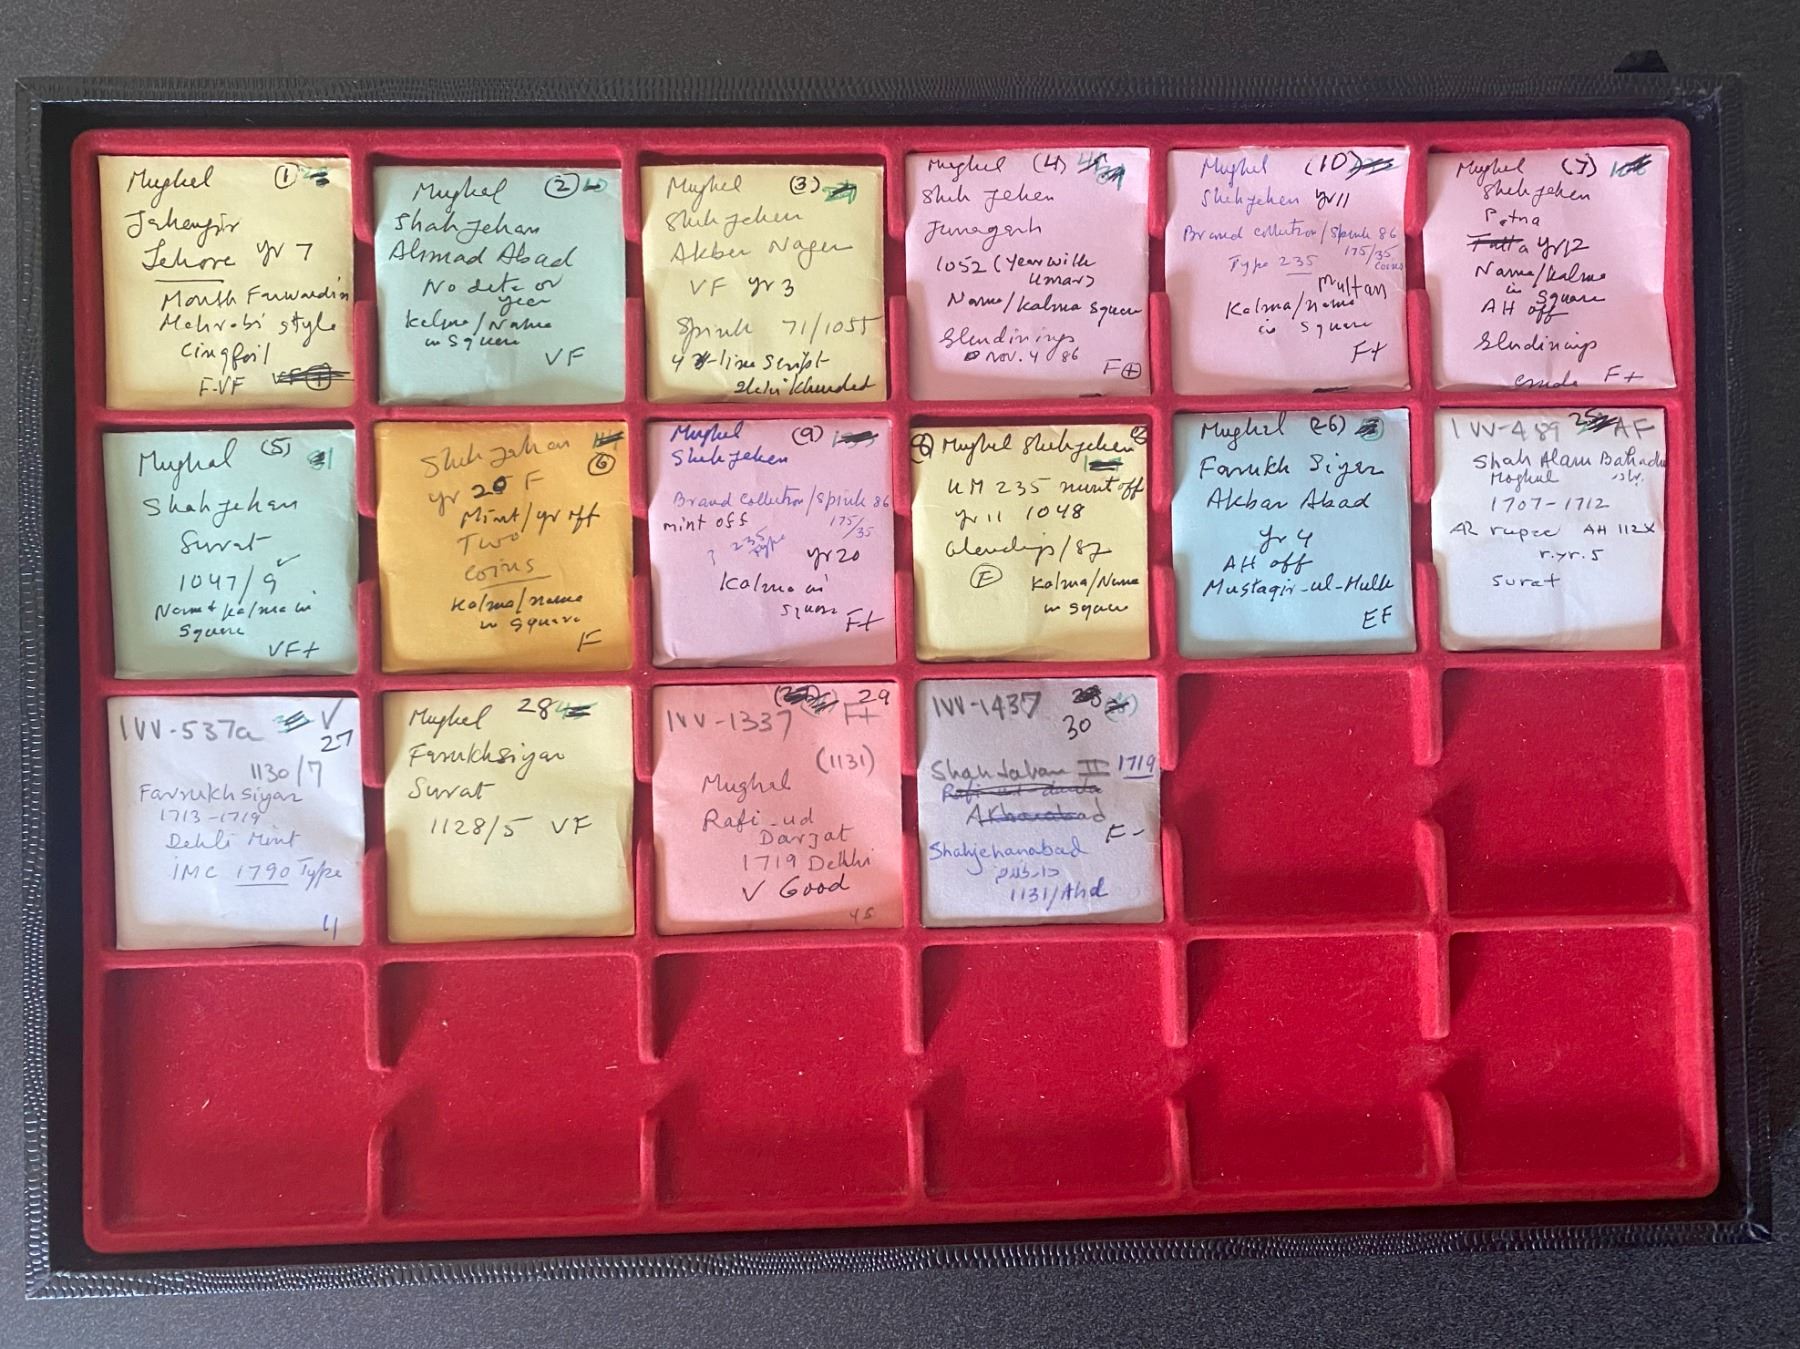 Mughal ①
Jahangir
Lahore yr 7
Month Farwardin
Mehrabi style
Cinqfoil
F-VF
Mughal ②
Shah Jehan
Ahmad Abad
No date or
year
Kalma/Name
in Square
VF
Mughal (3)
Shah Jehan
Akbar Nagar
VF yr 3
Spink 71/1055
4 line script
Mughal (4)
Shah Jehan
Junagarh
1052 (year with
Name/Kalma Square
Glendinings
Nov. 4 86
F+
Mughal (10)
Shahjehan yr 11
Brand collection/Spink 86
175/35
coins
Type 235
Multan
Kalma/name
in Square
F+
Mughal (7)
Shah Jehan
Patna
yr 12
Name/Kalma
in Square
AH off
Glendinings
crude F+
Mughal (5)
Shah Jehan
Surat
1047/9
Name & Kalma in
Square
VF+
Shah Jahan
⑥
yr 20 F
Mint/yr off
Two
coins
Kalma/name
in Square
F
Mughal (9)
Shah Jehan
Brand collection/Spink 86
mint off 175/35
? 235 type
yr 20
Kalma in
Square
F+
(8) Mughal Shahjehan
KM 235 mint off
yr 11 1048
Glendings/87
Ⓕ Kalma/Name
in square
Mughal (26)
Farrukh Siyar
Akbar Abad
yr 4
AH off
Mustaqir-ul-Mulk
EF
IVV-489 25 AF
Shah Alam Bahadur
Moghul
1707-1712
AR rupee AH 112X
r.yr.5
Surat
IVV-537a √
27
1130/7
Farrukhsiyar
1713-1719
Dehli Mint
IMC 1790 Type
4
Mughal 28
Farrukhsiyar
Surat
1128/5 VF
29
IVV-1337 F+
(1131)
Mughal
Rafi-ud
Darjat
1719 Delhi
V Good
45
IVV-1437
30
Shah Jahan II 1719
Rafi-ud-daula
Akbarabad
F-
Shahjehanabad
1131/Ahd